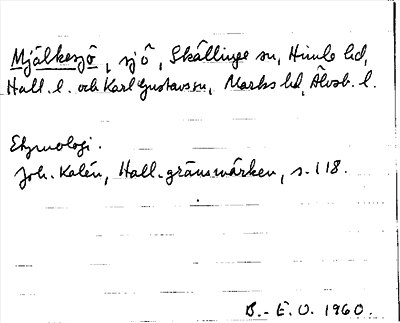 Mjälkesjö, sjö, Skällinge sn, Himle hd,
Hall. l. och Karl Gustavs sn, Marks hd, Älvsb. l.
Etymologi.
Joh. Kalén, Hall. gränsmärken, s. 118.
B.-E. O. 1960.